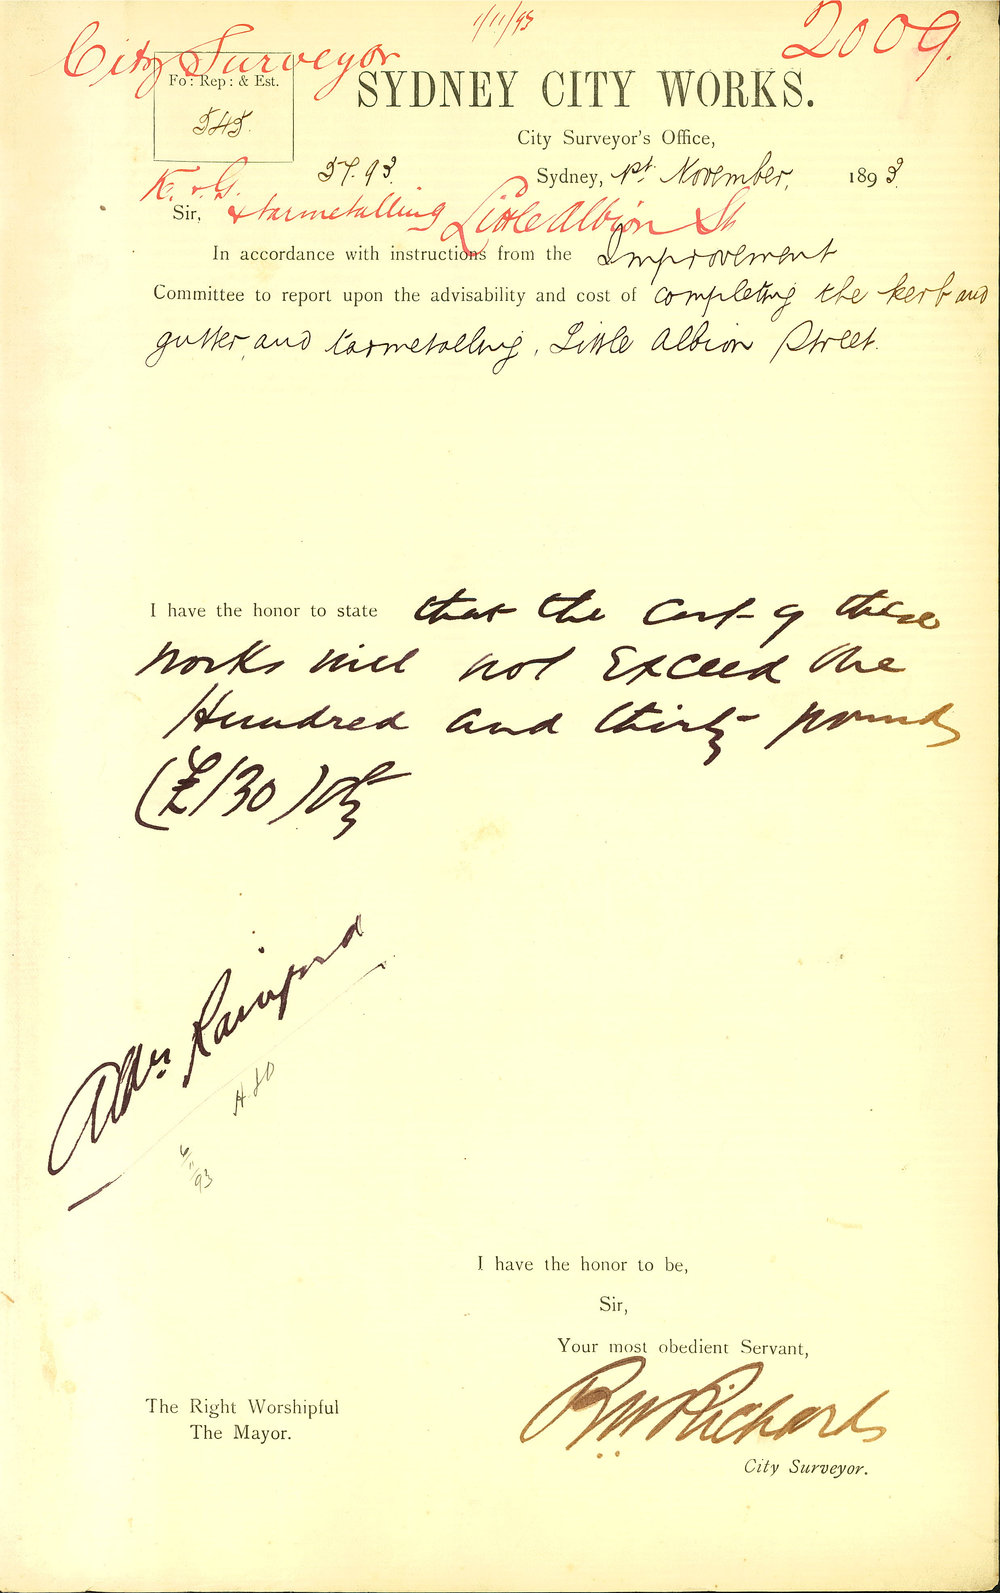 1/11/93
City Surveyor
2009.
Fo: Rep: & Est.
545.
SYDNEY CITY WORKS.
City Surveyor's Office,
37.93.
Sydney, 1st November, 1893.
K. & G.
Sir, & tarmetalling Little Albion St
In accordance with instructions from the Improvement
Committee to report upon the advisability and cost of completing the kerb and
gutter, and tarmetalling, Little Albion Street.
I have the honor to state that the cost of these
works will not exceed One
Hundred and thirty pounds
(£130)
Aldn Rainford
6/11/93
I have the honor to be,
Sir,
Your most obedient Servant,
RW Richards
City Surveyor.
The Right Worshipful
The Mayor.